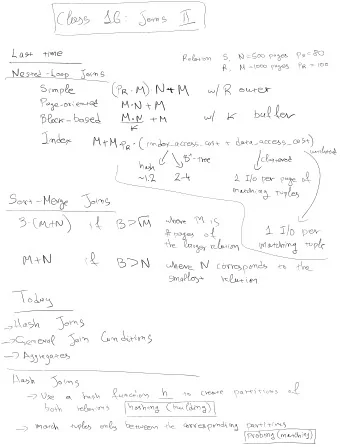 Class 16: Joins II
Last time
Relation S, N=500 pages PS=80
R, M=1000 pages PR=100
Nested-Loop Joins
Simple (PR·M)·N+M w/ R outer
Page-oriented M·N+M
Block-based M·N/K +M w/ K buffer
Index M+M·PR·(index_access_cost + data_access_cost)
hash B+-tree clustered unclustered
~1.2 2-4 1 I/O per page of matching tuples
1 I/O per matching tuple
Sort-Merge Joins
3·(M+N) if B>√M where M is
# pages of
the larger relation
M+N if B>N where N corresponds to the
smallest relation
Today
→Hash Joins
→General Join Conditions
→Aggregates
Hash Joins
→ Use a hash function h to create partitions of
both relations hashing (building)
→ match tuples only between the corresponding partitions
Probing (matching)